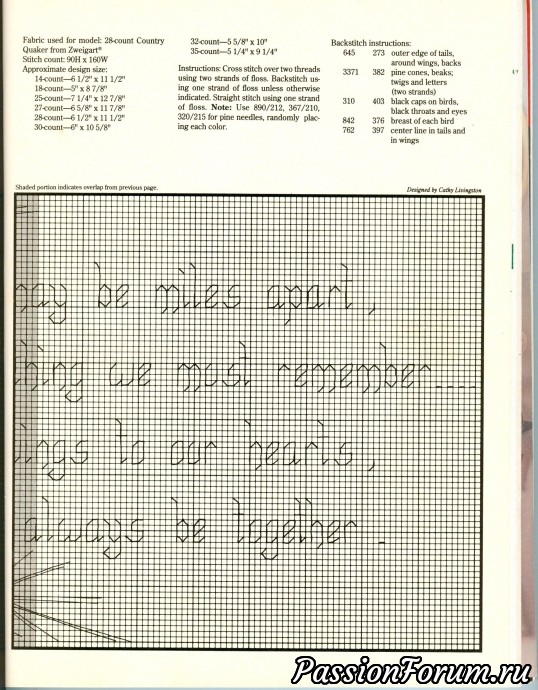 Fabric used for model: 28-count Country
Quaker from Zweigart®
Stitch count: 90H x 160W
Approximate design size:
14-count—6 1/2" x 11 1/2"
18-count—5" x 8 7/8"
25-count—7 1/4" x 12 7/8"
27-count—6 5/8" x 11 7/8"
28-count—6 1/2" x 11 1/2"
30-count—6" x 10 5/8"
32-count—5 5/8" x 10"
35-count—5 1/4" x 9 1/4"
Instructions: Cross stitch over two threads
using two strands of floss. Backstitch us-
ing one strand of floss unless otherwise
indicated. Straight stitch using one strand
of floss. Note: Use 890/212, 367/210,
320/215 for pine needles, randomly plac-
ing each color.
Backstitch instructions:
645 273 outer edge of tails,
around wings, backs
3371 382 pine cones, beaks;
twigs and letters
(two strands)
310 403 black caps on birds,
black throats and eyes
842 376 breast of each bird
762 397 center line in tails and
in wings
Shaded portion indicates overlap from previous page.
Designed by Cathy Livingston
may be miles apart,
hing we most remember....
ings to our hearts,
always be together .
PassionForum.ru